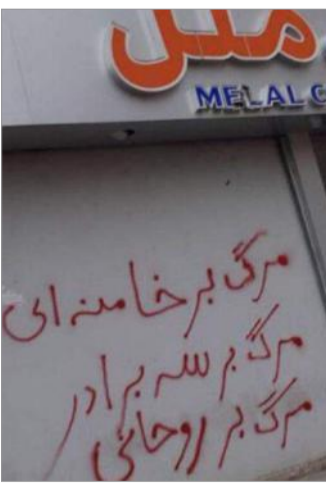 ملل
MELAL C
مرگ بر خامنه ای
مرگ بر سه برادر
مرگ بر روحانی